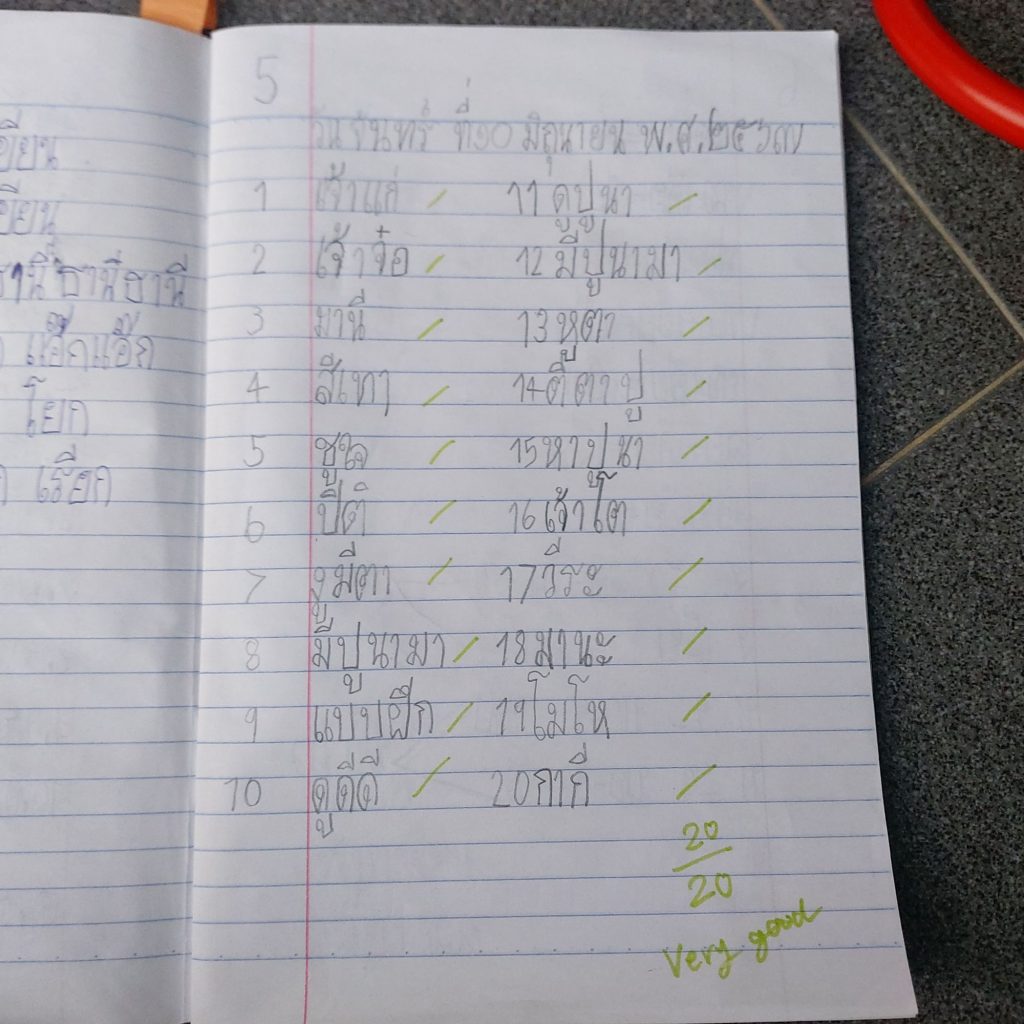 เขียน
เขียน
ธานี ธานี ธานี
แอ๊กแอ๊ก
โยก
เรือก
5
วันจันทร์ ที่๑๐ มิถุนายน พ.ศ.๒๕๖๗
1 เจ้าแก่ 11 ดูปูนา
2 เจ้าจ๋อ 12 มีปูนามา
3 มานี 13 หูตา
4 สีเทา 14 ตีตาปู
5 ชูใจ 15 หาปูนา
6 ปิติ 16 เจ้าโต
7 งูมีตา 17 วีระ
8 มีปูนามา 18 มานะ
9 แบบฝึก 19 โมโห
10 ดูดีดี 20 กากี
20
20
Very good